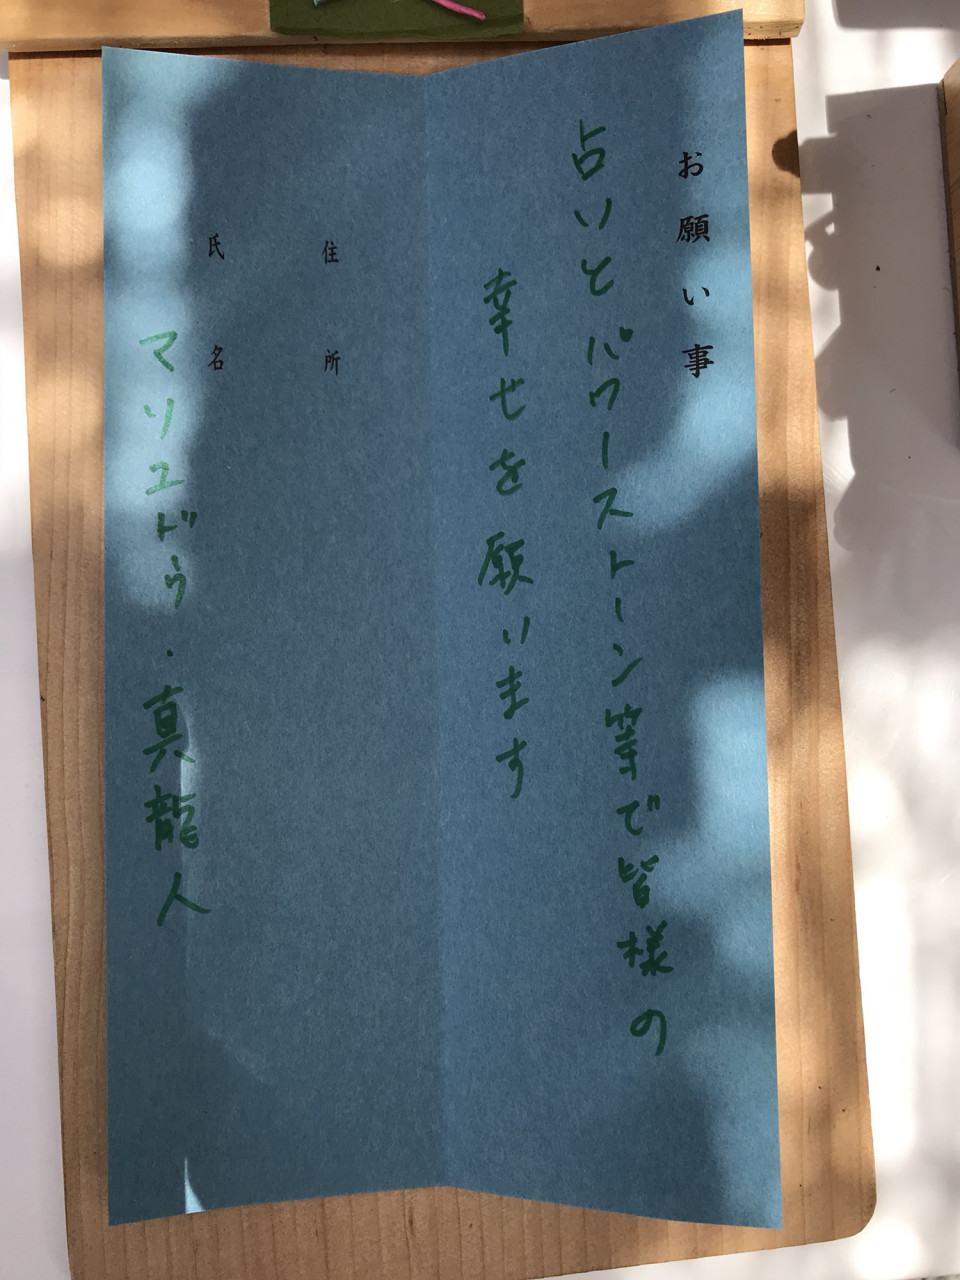 お願い事
占いとパワーストーン等で皆様の
幸せを願います
住所
氏名
マソユドゥ・真龍人